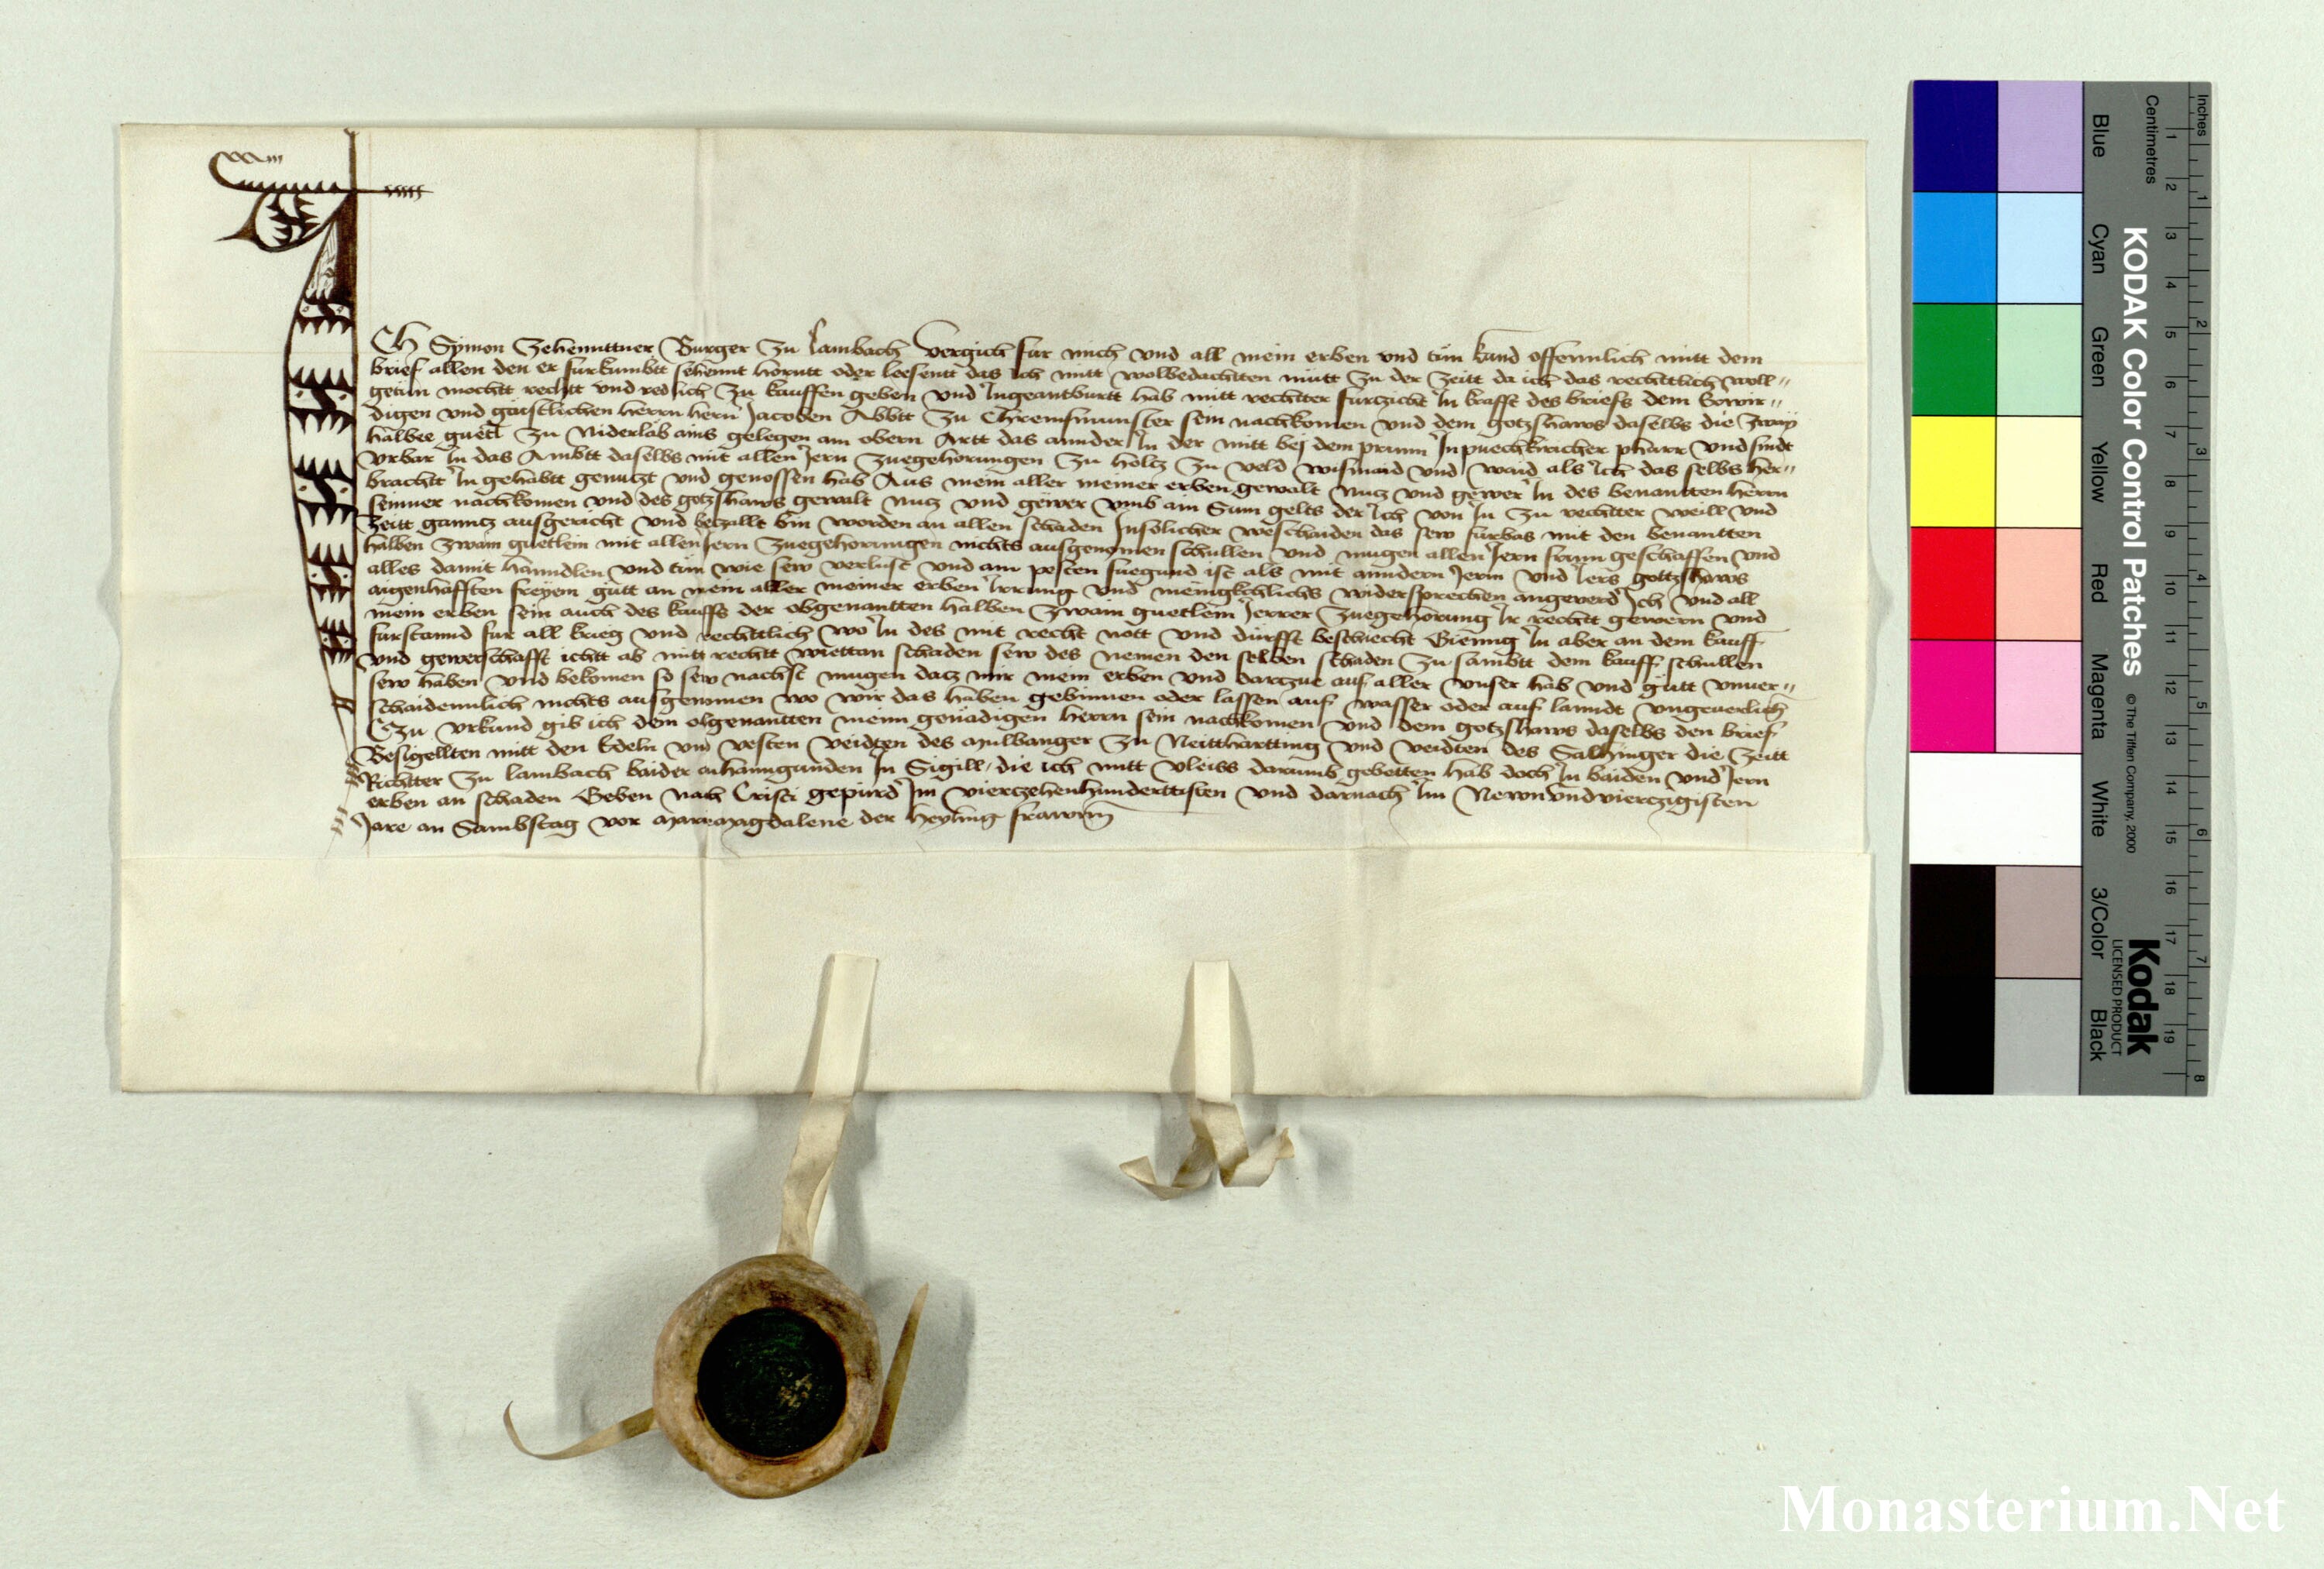 ICh Symon Zehenttner Burger zu Lambach vergich fur mich vnd all mein erben vnd tun kund offennlich mitt dem
brief allen den er furkumbtt sehennt horntt oder leesentt das ich mitt wolbedachtten mutt zu der zeitt da ich das rechttlich woll〃
getun mochtt rechtt vnd redlich zu kauffen geben vnd Ingeantburtt hab mitt rechtter furczicht In krafft des briefs dem Erwir〃
digen vnd gaistlichen herrn hern Jacoben Abbtt zu Chremsmunster sein nachkomen vnd dem gotzshaws daselbs die zway
halbee guetl zu Niderlab ains gelegen am obern Artt das annder In der mitt bej dem prunn In puechkiricher pharr vnd sindt
vrbar In das Ambtt daselbs mit allen Jern zuegehorungen zu holtz zu veld wismaid vnd waid als Ich das selbs her〃
brachtt In gehabtt genutzt vnd genossen hab Aus mein aller meiner erben gewalt nutz vnd gewer In des benantten herrn
seinner nachkomen vnd des gotzshaws gewalt nutz vnd gewer vmb ain Sum gelts der Ich von In zu rechtter weill vnd
zeitt ganntz ausgericht vnd betzallt bin worden an allen schaden Insolicher weschaiden das sew furbas mit den benantten
halben zwain guetlein mit allen Jern zuegehorungen nichts ausgenomen schullen vnd mugen allen Jern frum geschaffen vnd
alles damit hanndlen vnd tun wie sew verlust vnd am pesten fuegund ist als mit anndern Jerm vnd Jers gottzshaws
aigenhafften freyem gutt an mein aller meiner erben Irrung vnd menigklichs widersprechen angeverd Ich vnd all
mein erben sein auch des kauffs der obgenantten halben zwain guetlein Jerrer zuegehorung Ir rechtt gewern vnd
furstannd fur all krieg vnd rechttlich wo In des mit recht nott vnd durfft beschiecht Gienng In aber an dem kauff
vnd gewerschafft ichtt ab mitt rechtt wiettan schaden sew des nemen den selben schaden zu sambtt dem kauff schullen
sew haben vnd bekomen so sew nachst mugen datz mir mein erben vnd dartzue auf aller vnser hab vnd gutt vnuer〃
schaidennlich nichts ausgenomen wo wir das haben gebinnen oder lassen auf wasser oder auf lanndt vngeuerlich
Czu vrkund gib ich dem obgenantten meinn genadigen herrn sein nachkomen vnd dem gotzshaws daselbs den brief
Besigellten mitt den Edeln vnd vesten veidten des Mulbanger zu Neittharting vnd veidten des Salhinger die zeitt
Richtter zu lambach baider anhanngunden In Sigill die ich mitt vleiss darumb gebetten hab doch In baiden vnd Jern
erben an schaden Geben nach Cristi gepurd Im viertzehenhunderttisten vnd darnach Im Newnvndviertzigisten
Jare an Sambstag vor Mariemagdalene der heyling frawnn
KODAK Color Control Patches
© The Tiffen Company, 2000
Kodak
LICENSED PRODUCT
Inches 1 2 3 4 5 6 7 8
Centimetres 1 2 3 4 5 6 7 8 9 10 11 12 13 14 15 16 17 18 19
Blue Cyan Green Yellow Red Magenta White 3/Color Black
Monasterium.Net